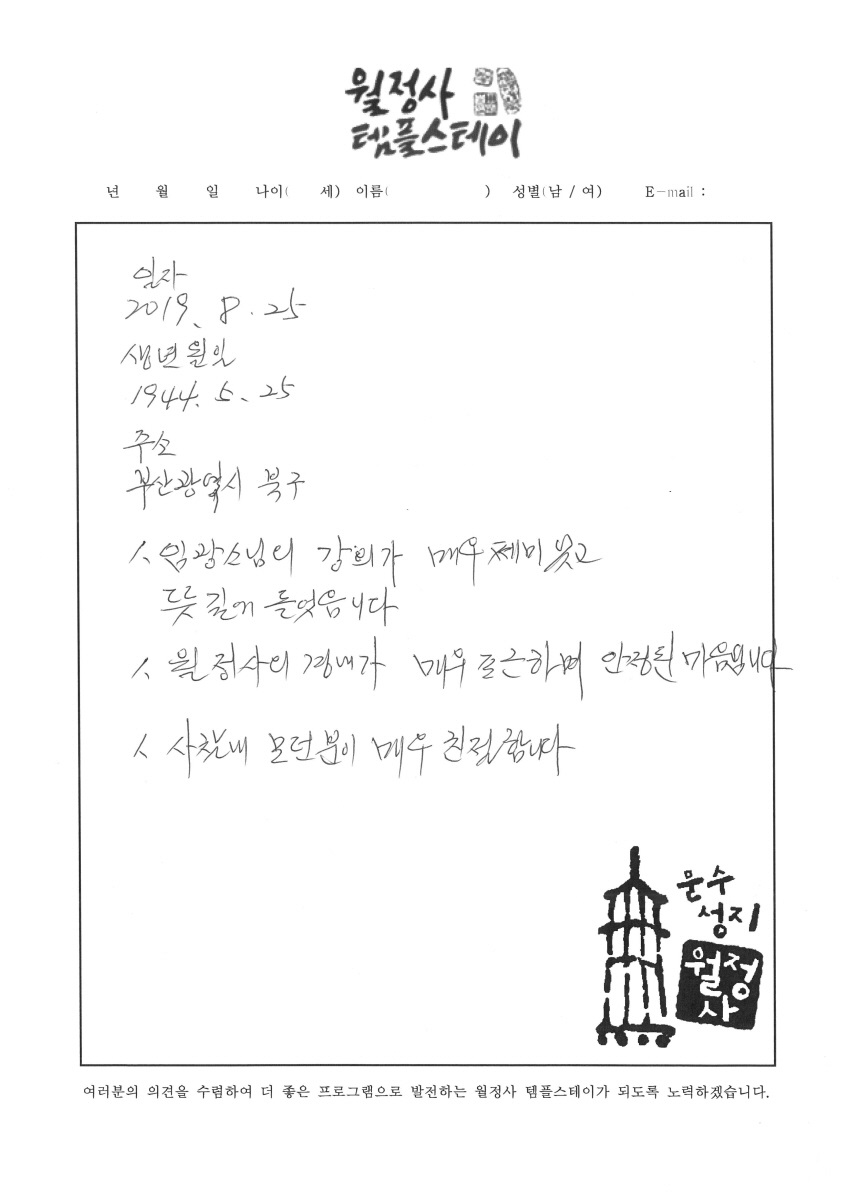 월정사
템플스테이
년 월 일 나이( 세) 이름( ) 성별(남 / 여) E-mail :
일자
2019. 8. 25
생년월일
1944. 5. 25
주소
부산광열시 북구
인광스님의 강의가 매우 제미 낫고
듯 깊게 들엇읍니다
월정사의 경내가 매우 포근하며 안정된 마음입니다
사찰내 모던분이 매우 친절합니다
문수
성지
월정
사
여러분의 의견을 수렴하여 더 좋은 프로그램으로 발전하는 월정사 템플스테이가 되도록 노력하겠습니다.